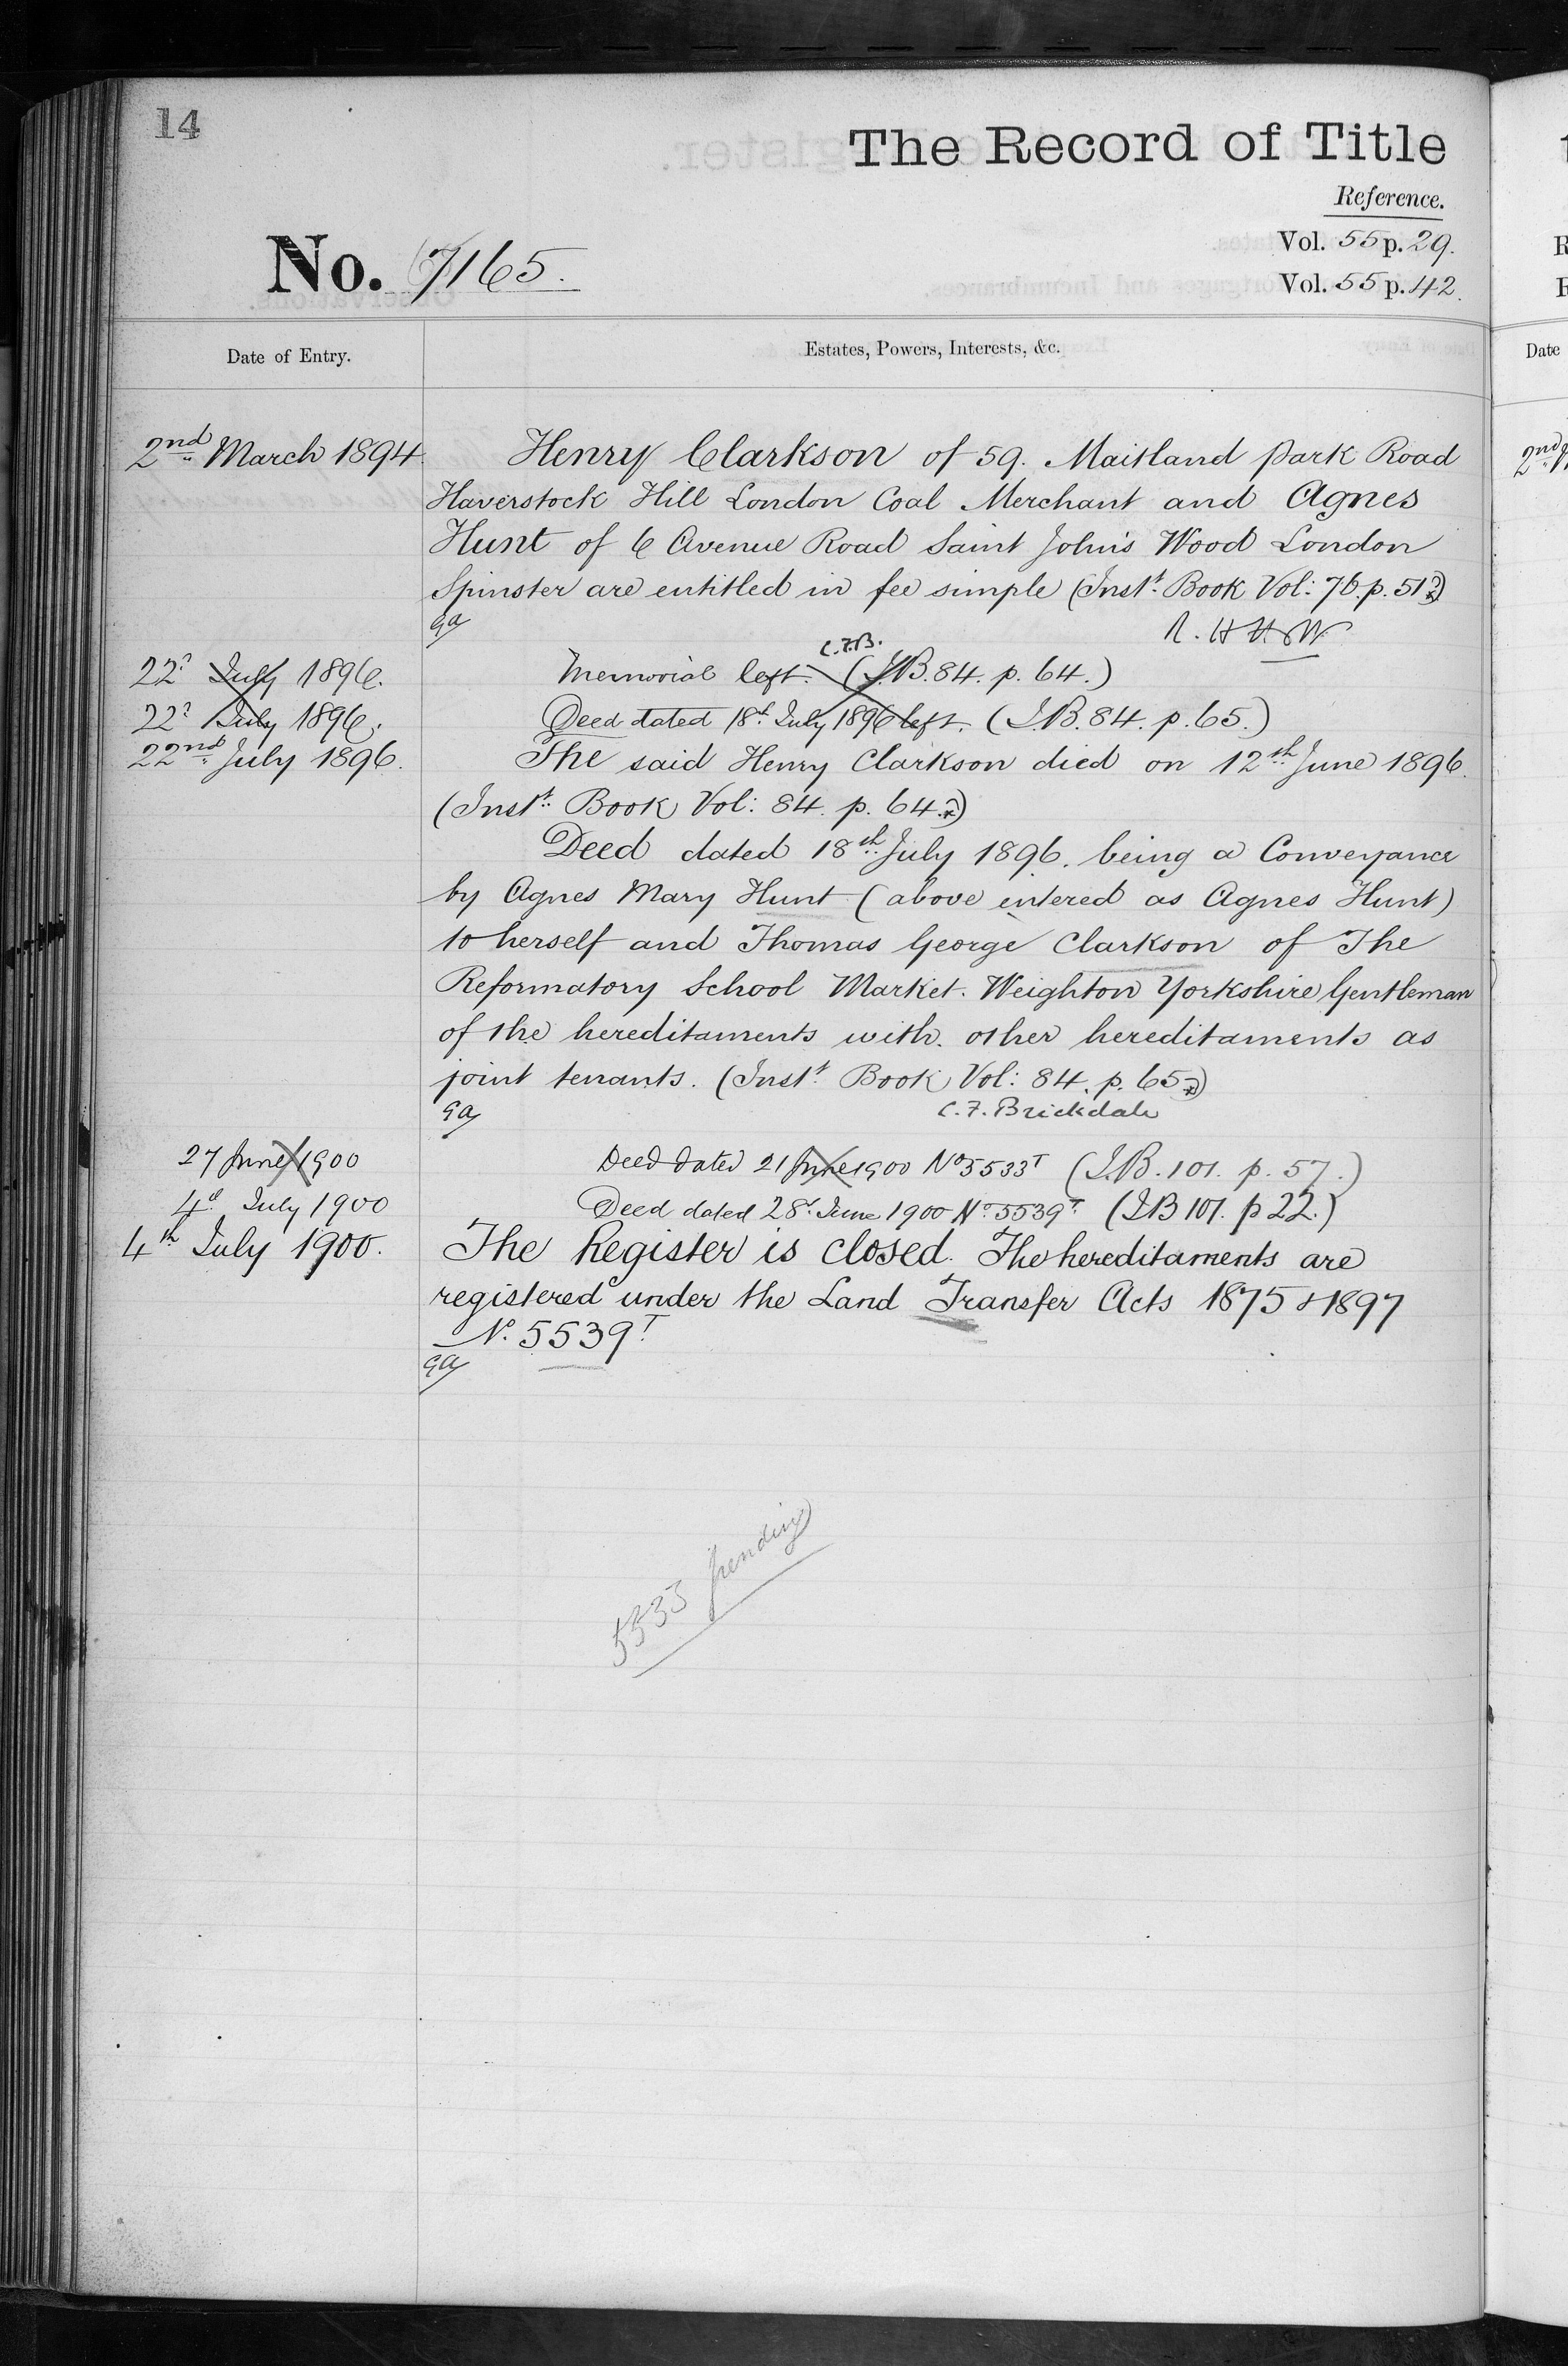 14
The Record of Title
Reference.
Vol. 55 p. 29.
No. 7165.
Vol. 55 p. 42.
Date of Entry.
Estates, Powers, Interests, &c.
2nd March 1894
Henry Clarkson of 59. Maitland Park Road
Haverstock Hill London Coal Merchant and Agnes
Hunt of 6 Avenue Road Saint John's Wood London
Spinster are entitled in fee simple (Instt. Book Vol: 76. p. 51)
GA
R. H H W
C.F.B.
22d July 1896.
Memorial left. (I.B. 84. p. 64.)
22d July 1896.
Deed dated 18th July 1896 left. (I.B. 84. p. 65.)
22nd July 1896.
The said Henry Clarkson died on 12th June 1896.
(Instt. Book Vol: 84. p. 64.)
Deed dated 18th July 1896. being a Conveyance
by Agnes Mary Hunt (above entered as Agnes Hunt)
to herself and Thomas George Clarkson of The
Reformatory School Market Weighton Yorkshire Gentleman
of the hereditaments with other hereditaments as
joint tenants. (Instt. Book Vol: 84. p. 65)
GA
C.F. Brickdale
27 June 1900
Deed dated 21 June 1900 No 5533T (I.B. 101. p. 57.)
4th July 1900
Deed dated 28th June 1900 No 5539T. (I.B 101. p 22.)
4th July 1900.
The Register is closed. The hereditaments are
registered under the Land Transfer Acts 1875 & 1897
No. 5539T
GA
5533 pending
R
R
Date
2nd